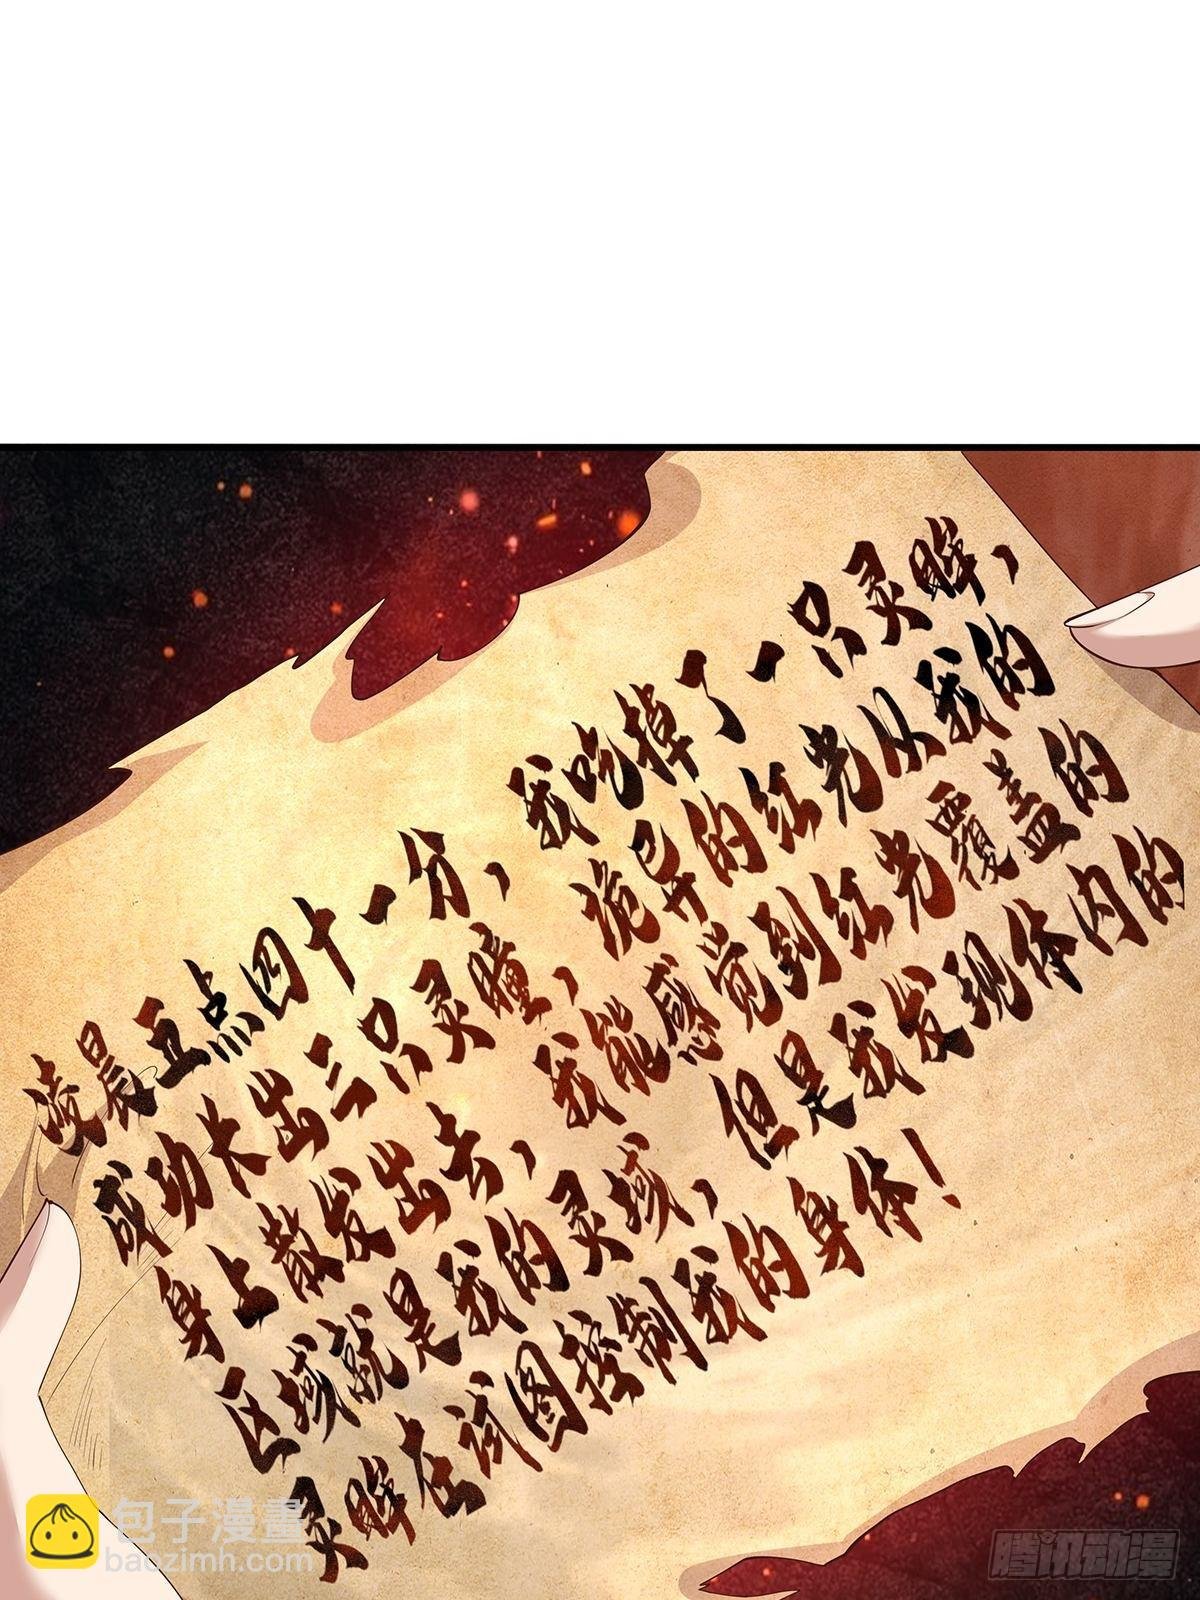 凌晨五点四十一分，我吃掉了一只灵眸，
成功长出三只灵瞳，诡异的红光从我的
身上散发出去，我能感觉到红光覆盖的
区域就是我的灵域，但是我发现体内的
灵眸在试图控制我的身体！
包子漫畫
baozimh.com
腾讯动漫